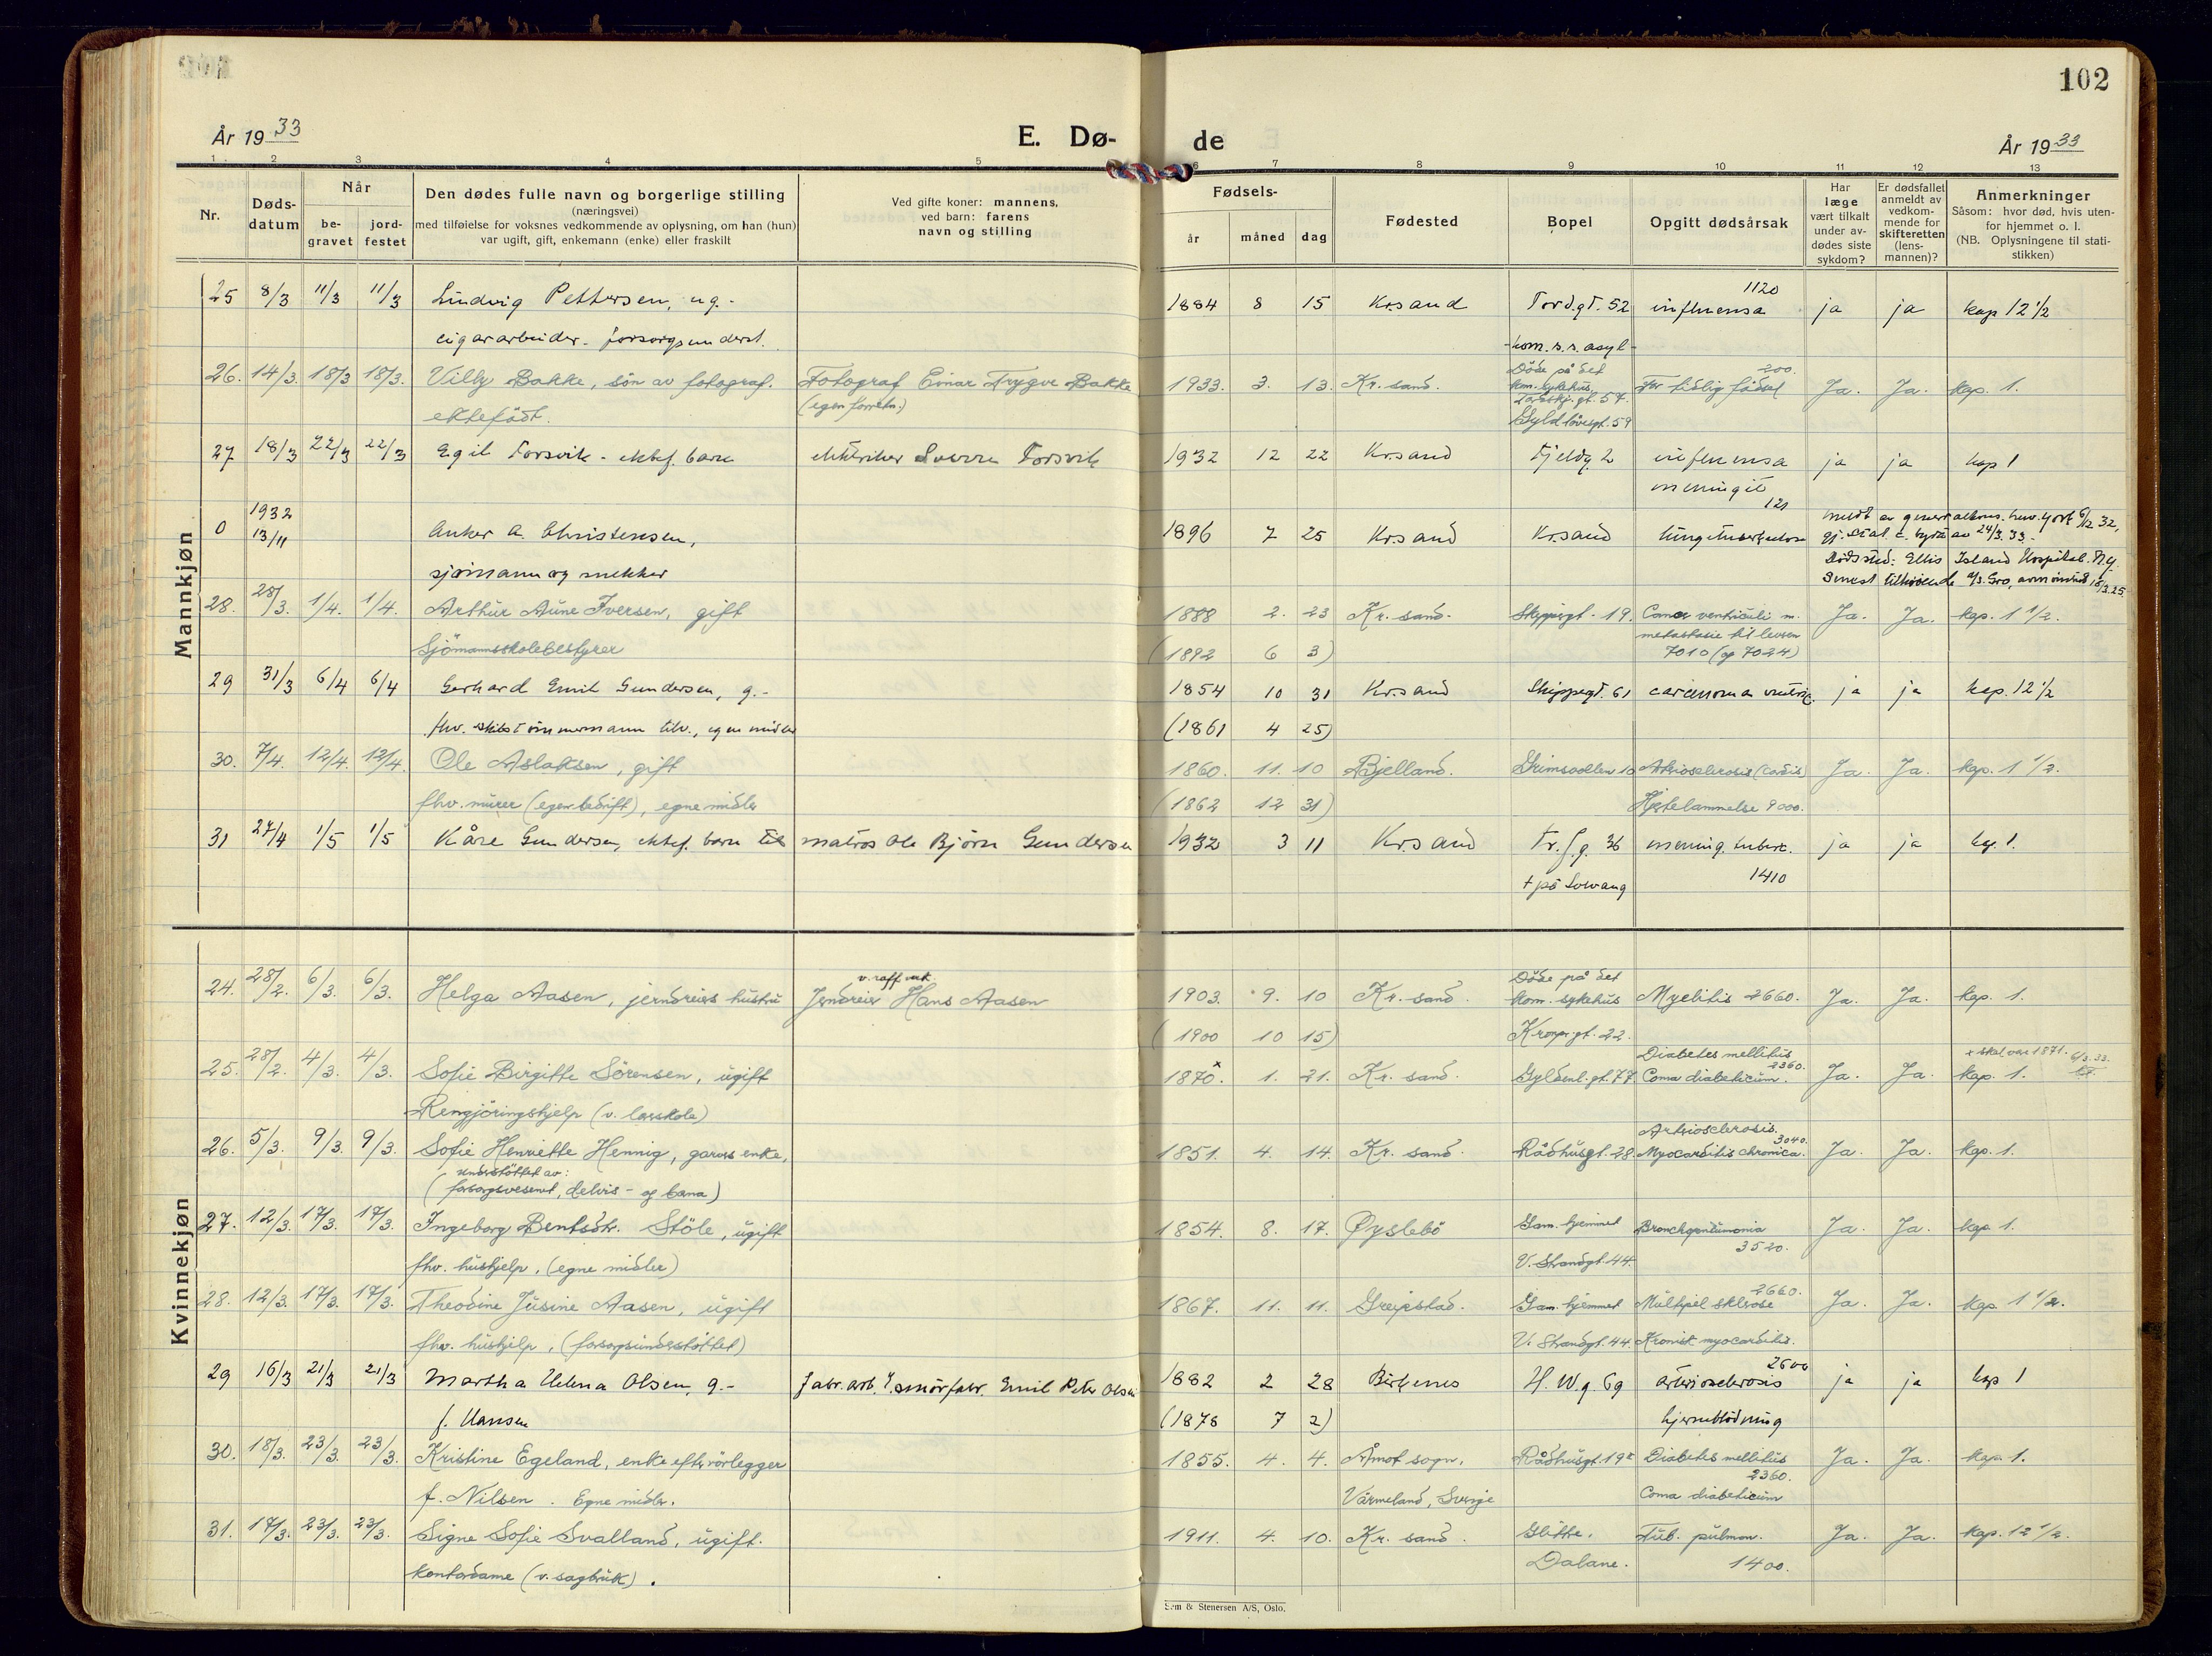 102
År 1933
E. Dø-
de
År 1933
1 2 3 4 5 6 7 8 9 10 11 12 13
Nr.
Døds-
datum
Når
be-
gravet
jord-
festet
Den dødes fulle navn og borgerlige stilling
(næringsvei)
med tilføielse for voksnes vedkommende av oplysning, om han (hun)
var ugift, gift, enkemann (enke) eller fraskilt
Ved gifte koner: mannens,
ved barn: farens
navn og stilling
Fødsels-
år
måned
dag
Fødested
Bopel
Opgitt dødsårsak
Har
læge
vært tilkalt
under av-
dødes siste
sykdom?
Er dødsfallet
anmeldt av
vedkom-
mende for
skifteretten
(lens-
mannen)?
Anmerkninger
Såsom: hvor død, hvis uten-
for hjemmet o. l.
(NB. Oplysningene til stati-
stikken)
Mannkjøn
1120
25 8/3 11/3 11/3 Ludvig Pettersen, ug.- 1884 8 15 Krsand Tord.gt. 52 influensa ja ja kap 12 1/2
cigararbeider. forsorgsunderst. kom. s.r. asyl
Döde på det 200.
26. 14/3. 18/3 18/3. Villy Bakke, sön av fotograf. Fotograf Einar Trygve Bakke 1933. 3. 13. Kr. sand. kom. sykehus, For tidlig födsel Ja. Ja. kap. 1.
ektefödt. (egen forretn.) gt. 57.
Gyldlövesgt. 59
27 18/3 22/3 22/3 Egil Torsvik - ektef. barn elektriker Sverre Torsvik 1932 12 22 Krsand Fjeldg 2 influensa ja ja kap 1
meningit
121
1932
0 13/11 Anker A. Christensen, 1896 7 25 Krsand Krsand lungetuberkulose
meldt av generalkons. New York 6/12 32,
gj. stat. c. byrå av 24/3. 33.-
sjømann og snekker
Dödssted: Ellis Island Hospital. N.y.
28. 28/3. 1/4. 1/4. Arthur Aune Iversen, gift 1888 2. 23 Kr. sand. Skippergt. 19. Cancer ventriculi m. Ja. Ja. kap. 1 1/2.
Sjömannsskolebestyrer (1892 6 3) metastasie til leveren
7010 (og 7024)
29 31/3 6/4 6/4 Gerhard Emil Gundersen, g.- 1854 10 31 Krsand Skippergt. 61 carcinoma ventric. ja ja kap. 12 1/2
fhv. skibstömmermann tilv., egne midler (1861 4 25)
30. 7/4. 12/4. 12/4. Ole Aslaksen, gift 1860. 11. 10 Bjelland. Grimsvollen 10 Arteriosclerosis (cordis) Ja. Ja. kap. 1 1/2.
fhv. murer (egen bedrift), egne midler (1862 12 31) Hjertelammelse 9000.
31 27/4 1/5 1/5 Kåre Gundersen, ektef. barn til matros Ole Bjørn Gundersen 1932 3 11 Krsand Tr.f.g. 36 mening. tuberk. ja ja kap. 1.
+ på Solvang 1410
Kvinnekjøn
Döde på det
24. 28/2. 6/3. 6/3. Helga Aasen, jerndreiers hustru Jerndreier Hans Aasen 1903. 9. 10 Kr. sand. kom. sykehus Myelitis 2660. Ja. Ja. kap. 1.
(1900 10 15) Kronpr.gt. 22.
Diabetes mellitus x skal være 1871. 6/3. 33.
25. 28/2. 4/3. 4/3. Sofie Birgitte Sörensen, ugift 1870.x 1. 21. Kr. sand. Gyldenl. gt. 77 Coma diabeticum. 2360. Ja. Ja. kap. 1.
Rengjöringshjelp
Arteriosclerosis. 3040.
26. 5/3. 9/3. 9/3. Sofie Henriette Hennig, garvers enke, 1851. 4. 14. Kr. sand. Rådhusgt. 28. Myocarditis chronica. Ja. Ja. kap. 1.
understöttet av:
(forsorgsvesenet, delvis - og barna)
27. 12/3. 17/3. 17/3. Ingeborg Bentsdtr. Stöle, ugift 1854. 8. 17. Øyslebö Gam. hjemmet Bronchopneumonia Ja. Ja. kap. 1.
fhv. hushjelp. (egne midler) V. Strandgt. 44. 3520.
2660.
28. 12/3. 17/3. 17/3. Theodine Jusine Aasen, ugift 1867. 11. 11. Greipstad. Gam. hjemmet Multipel sklerose Ja. Ja. kap. 1 1/2.
fhv. hushjelp. (forsorgsunderstöttet) V. Strandgt. 44. Kronisk myocarditis.
2600
29 16/3 21/3 21/3 Martha Helena Olsen, g.- fabr.arb. smørfabr. Emil Peter Olsen 1882 2 28 Birkenes H. W. g. 69 arteriosclerosis ja ja kap 1
f. Hansen (1878 7 2) hjerneblödning
30. 18/3. 23/3. 23/3. Kristine Egeland, enke efter rörlegger 1855. 4. 4. Åmot sogn, Rådhusgt. 19 Diabetes mellitus Ja. Ja. kap. 1.
2360.
f. Nilsen. Egne midler. Värmeland, Sverige Coma diabeticum
31. 17/3. 23/3. 23/3. Signe Sofie Svalland, ugift. 1911. 4. 10. Kr. sand. Glitre, Tub. pulmon. Ja. Ja. kap. 12 1/2.
kontordame (v. sagbruk). Dalane. 1400.
Sem & Stenersen A/S, Oslo.